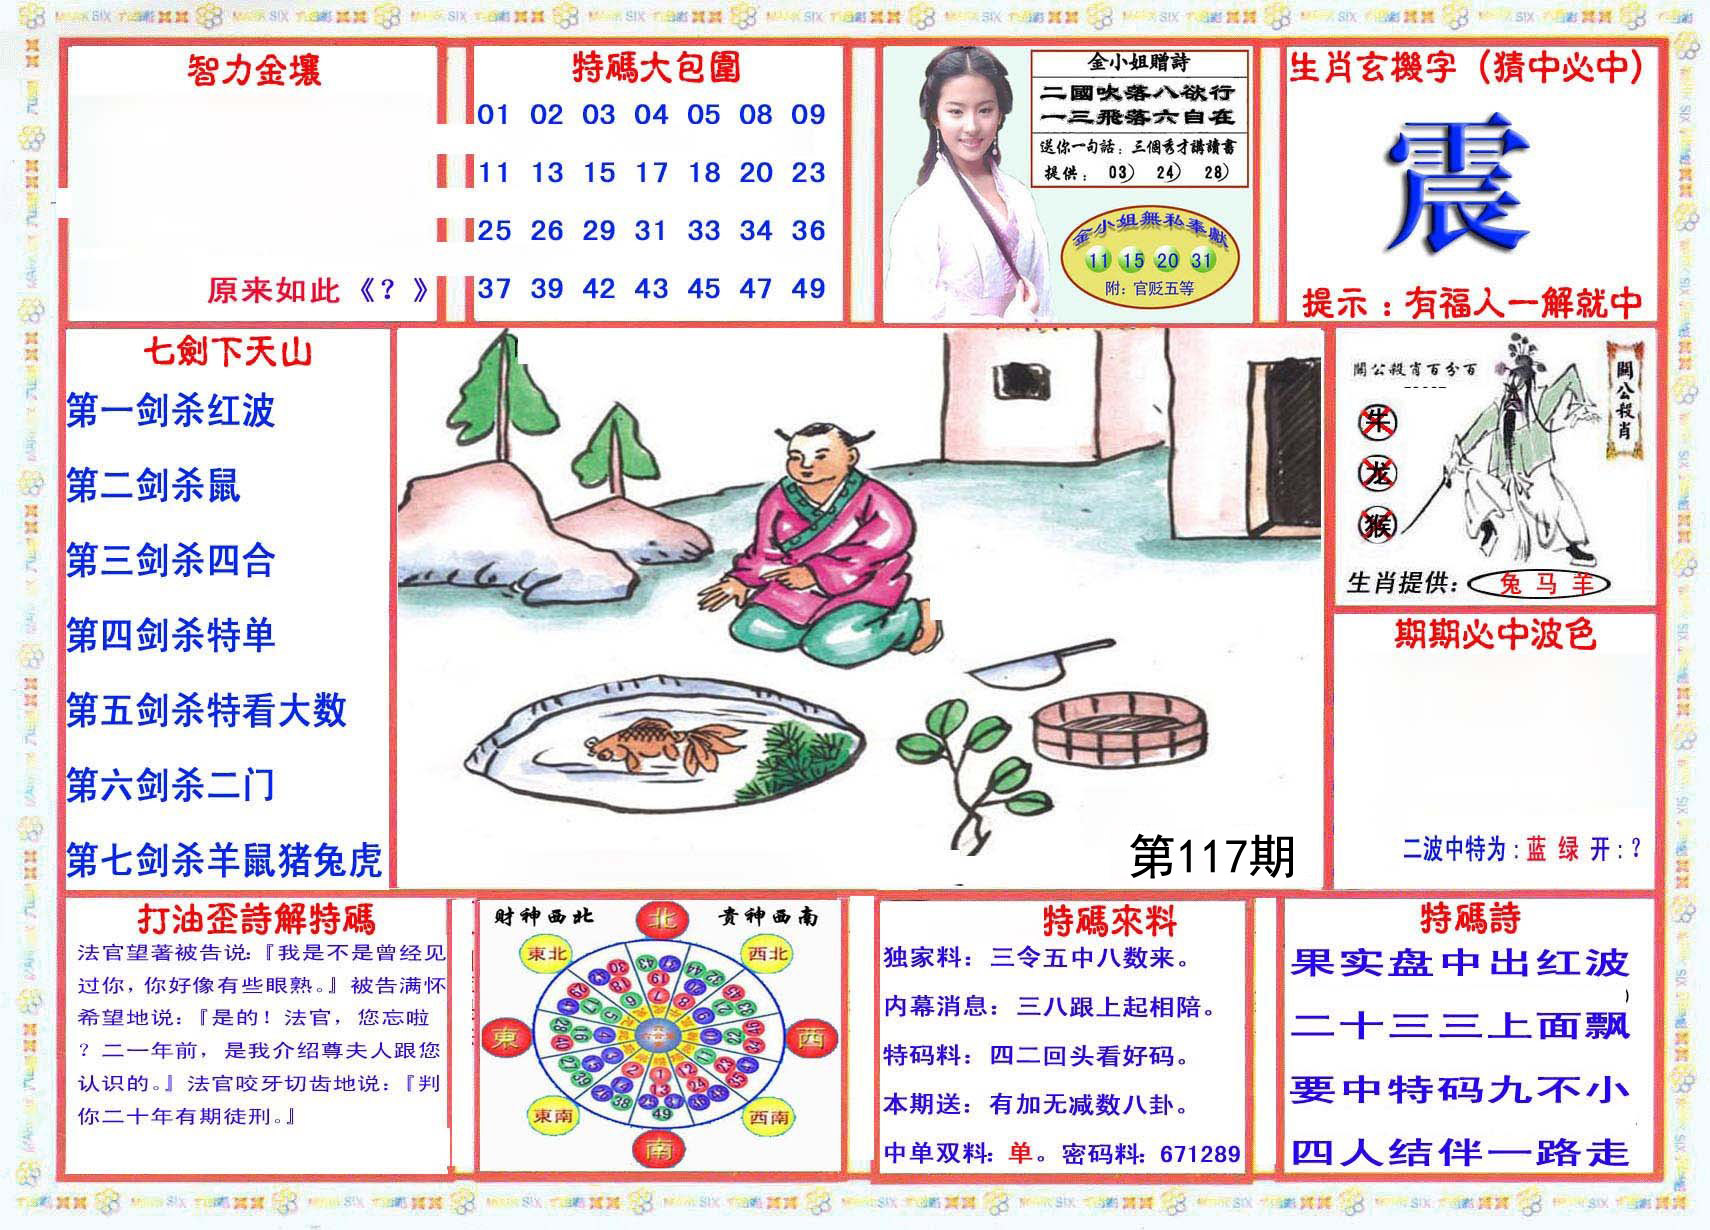 智力金壤
原来如此《？》
特碼大包圍
01 02 03 04 05 08 09
11 13 15 17 18 20 23
25 26 29 31 33 34 36
37 39 42 43 45 47 49
金小姐贈詩
二國吹落八欲行
一三飛落六自在
送你一句話：三個秀才講讀書
提供： 03） 24） 28）
金小姐無私奉獻
11 15 20 31
附：官贬五等
生肖玄機字（猜中必中）
震
提示：有福人一解就中
七劍下天山
第一剑杀红波
第二剑杀鼠
第三剑杀四合
第四剑杀特单
第五剑杀特看大数
第六剑杀二门
第七剑杀羊鼠猪兔虎
第117期
關公殺肖百分百
關公殺肖
牛
龙
猴
生肖提供：兔 马 羊
期期必中波色
二波中特为：蓝 绿 开：？
打油歪詩解特碼
法官望著被告说：『我是不是曾经见
过你，你好像有些眼熟。』被告满怀
希望地说：『是的！法官，您忘啦
？二一年前，是我介绍尊夫人跟您
认识的。』法官咬牙切齿地说：『判
你二十年有期徒刑。』
财神西北 贵神西南
北
東北 西北
東 西
東南 西南
南
特碼來料
独家料：三令五中八数来。
内幕消息：三八跟上起相陪。
特码料：四二回头看好码。
本期送：有加无减数八卦。
中单双料：单。密码料：671289
特碼詩
果实盘中出红波
二十三三上面飘
要中特码九不小
四人结伴一路走